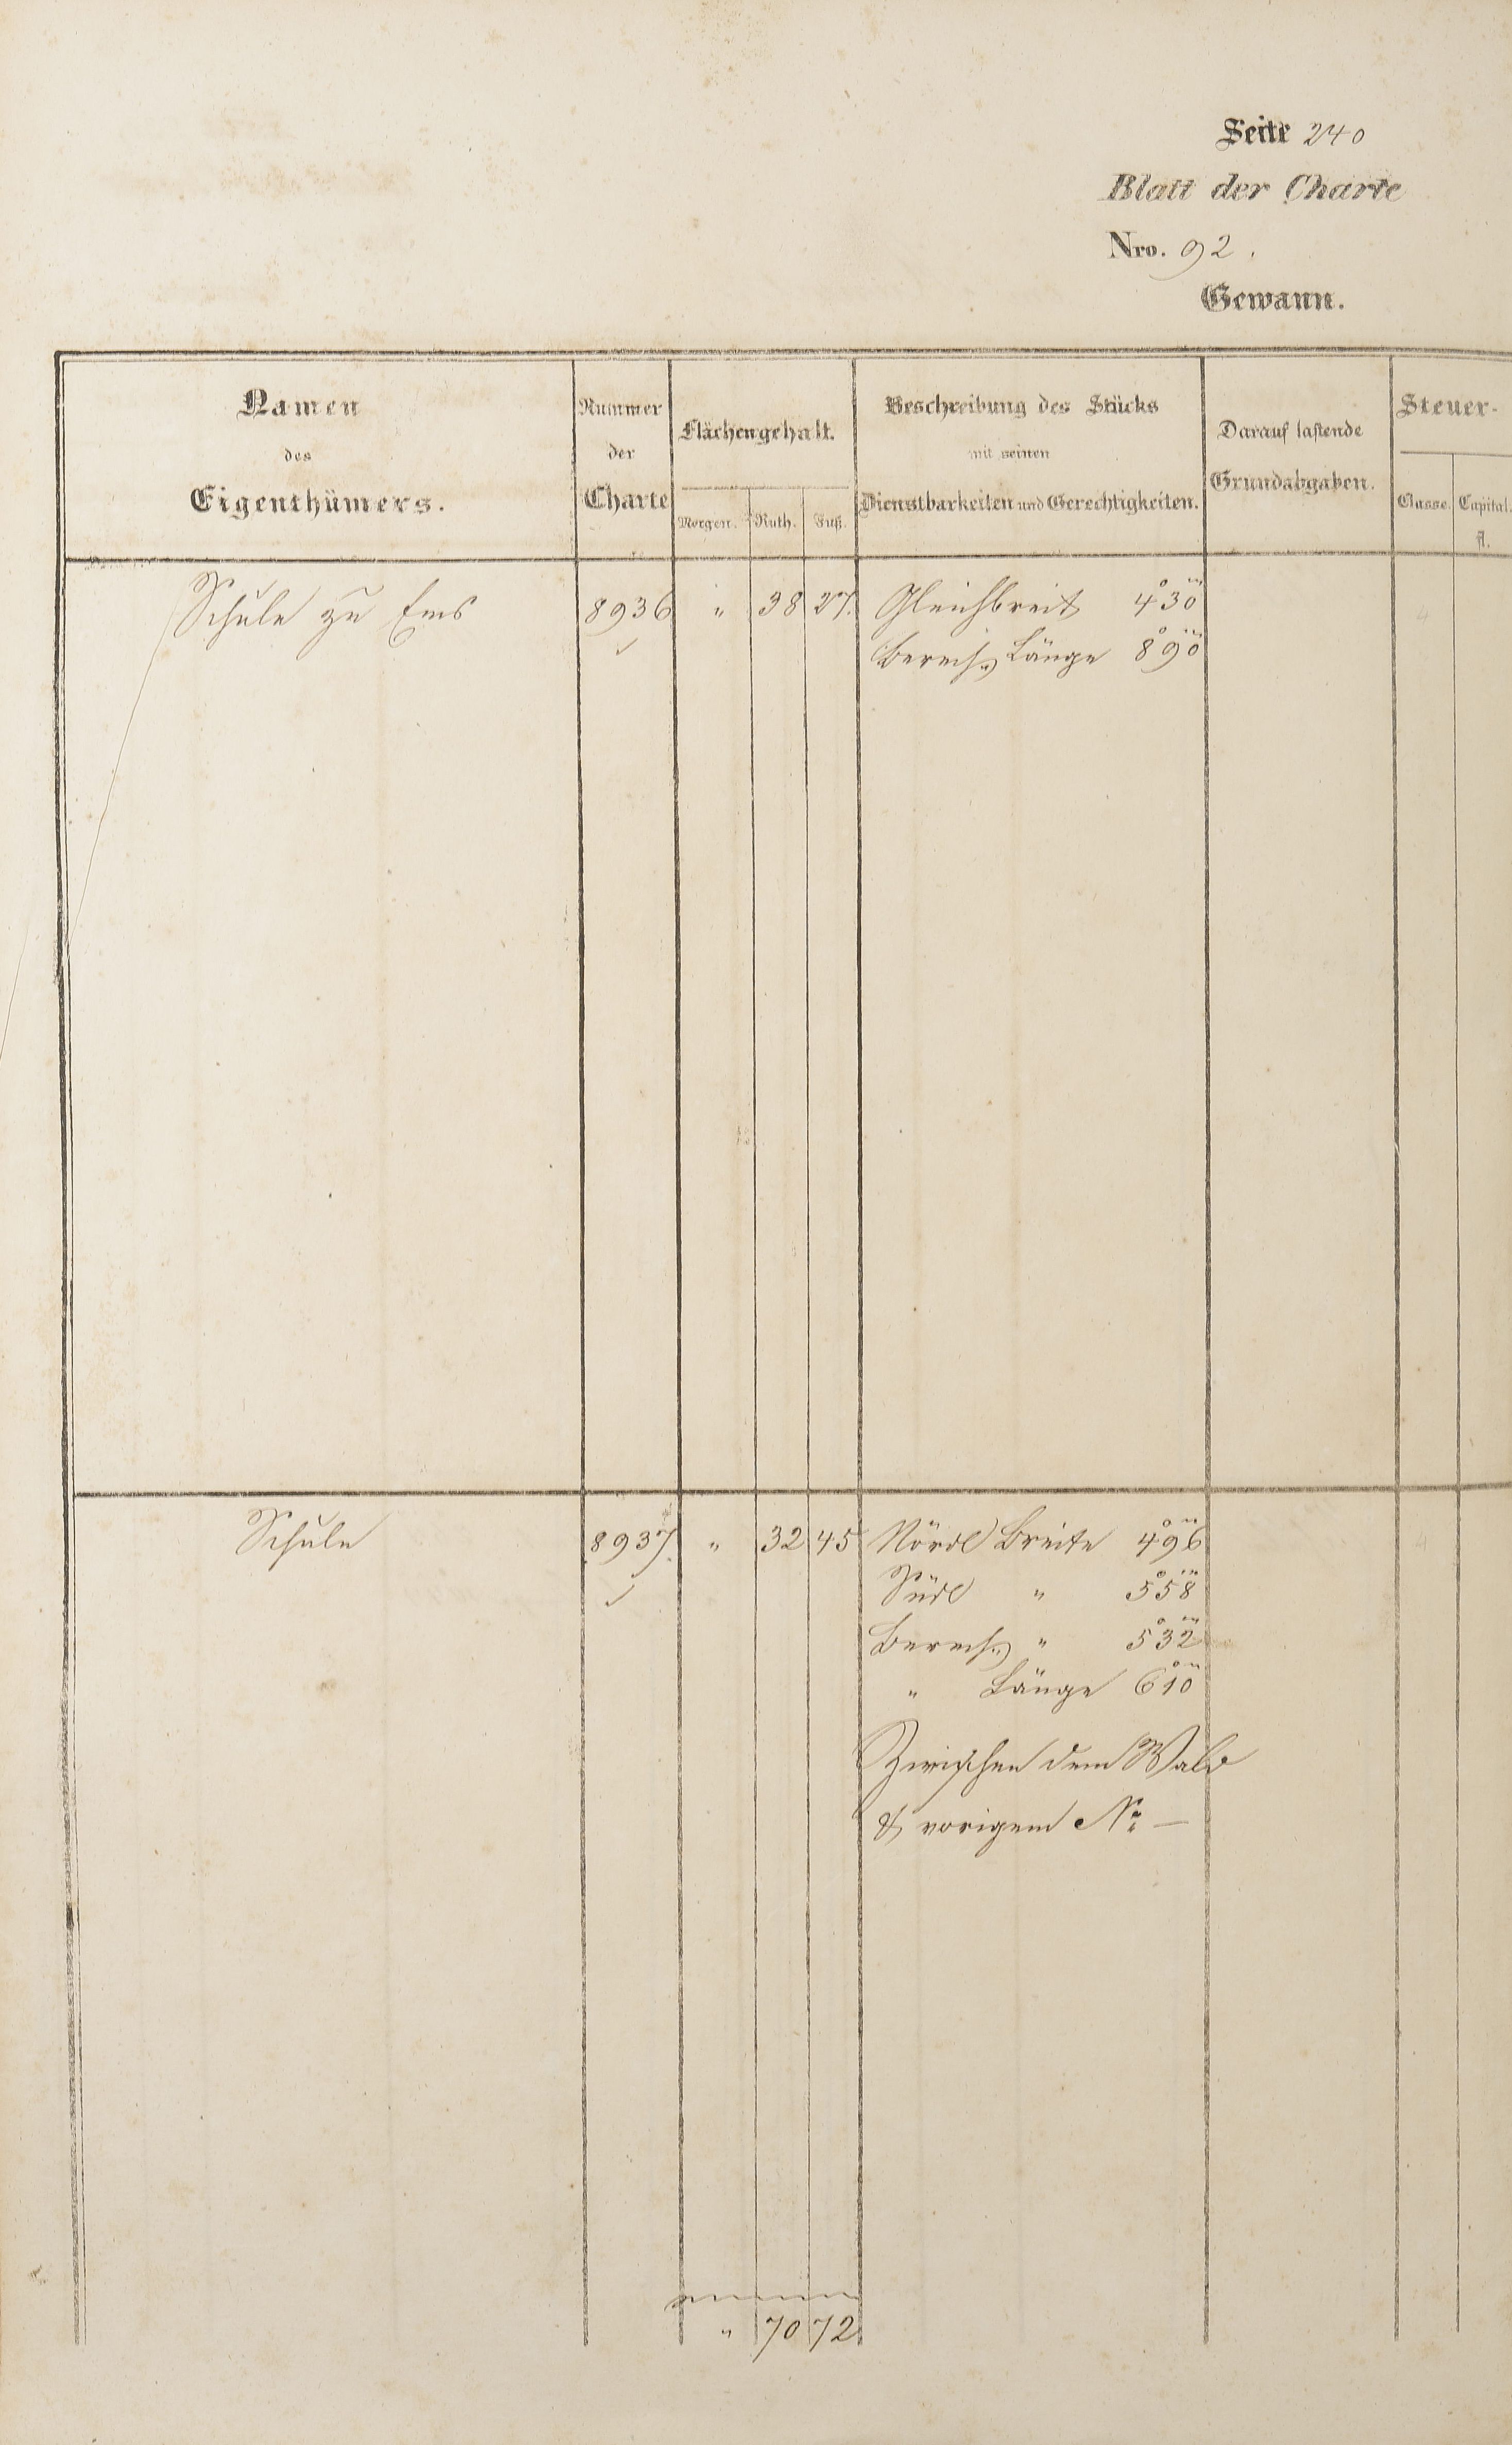 Seite 240
Blatt der Charte
Nro. 92.
Gewann.
Namen des Eigenthümers.
Nummer der Charte
Flächengehalt.
Morgen. Ruth. Fuß.
Beschreibung des Stücks mit seinen Dienstbarkeiten und Gerechtigkeiten.
Darauf lastende Grundabgaben.
Steuer-
Classe. Capital. fl.
Schule zu Ems 8936 " 38 27. Gleichbreit 4° 30''' 4
✓ Berech. Länge 8° 90'''
Schule 8937. " 32 45 Nördl Breite 4° 96''' 4
✓ Südl " 5° 58'''
Berech. " 5° 32'''
" Länge 6° 10'''
Zwischen dem Wald
& vorigem No —
" 70 72